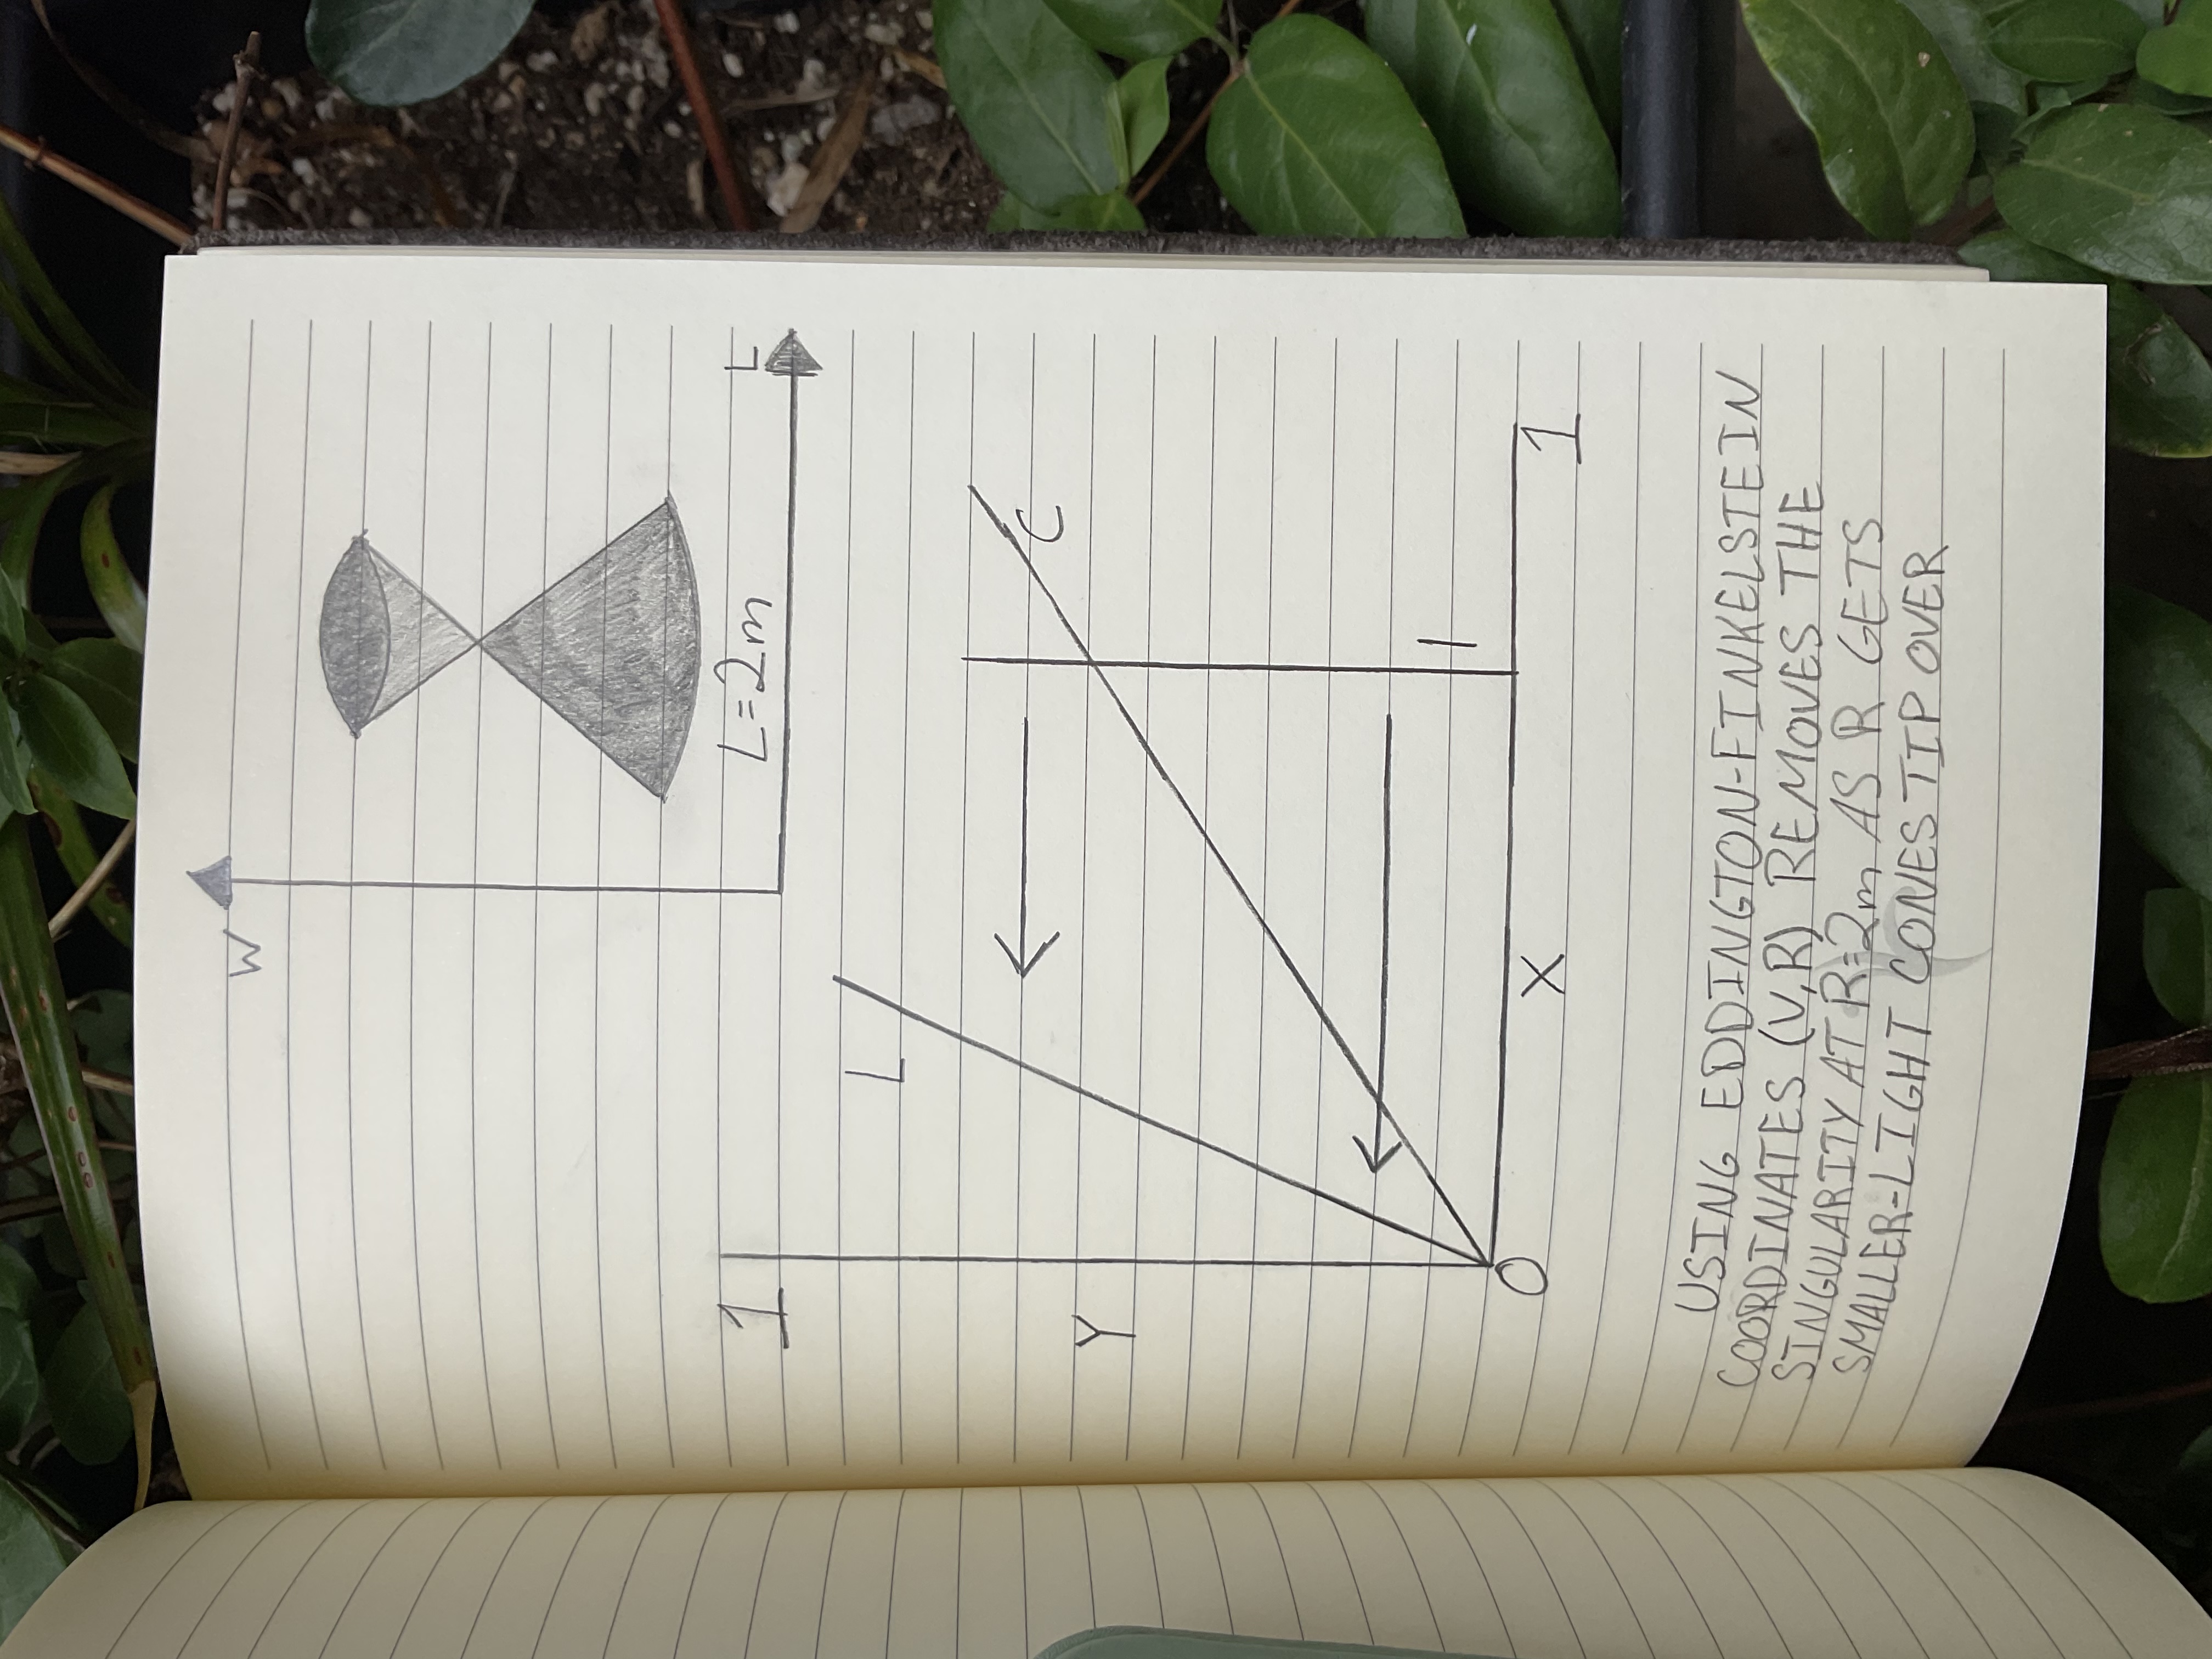 W
L=2m
L
1
L
C
Y
I
O
X
1
USING EDDINGTON-FINKELSTEIN
COORDINATES (V,R) REMOVES THE
SINGULARITY AT R=2m AS R GETS
SMALLER-LIGHT CONES TIP OVER